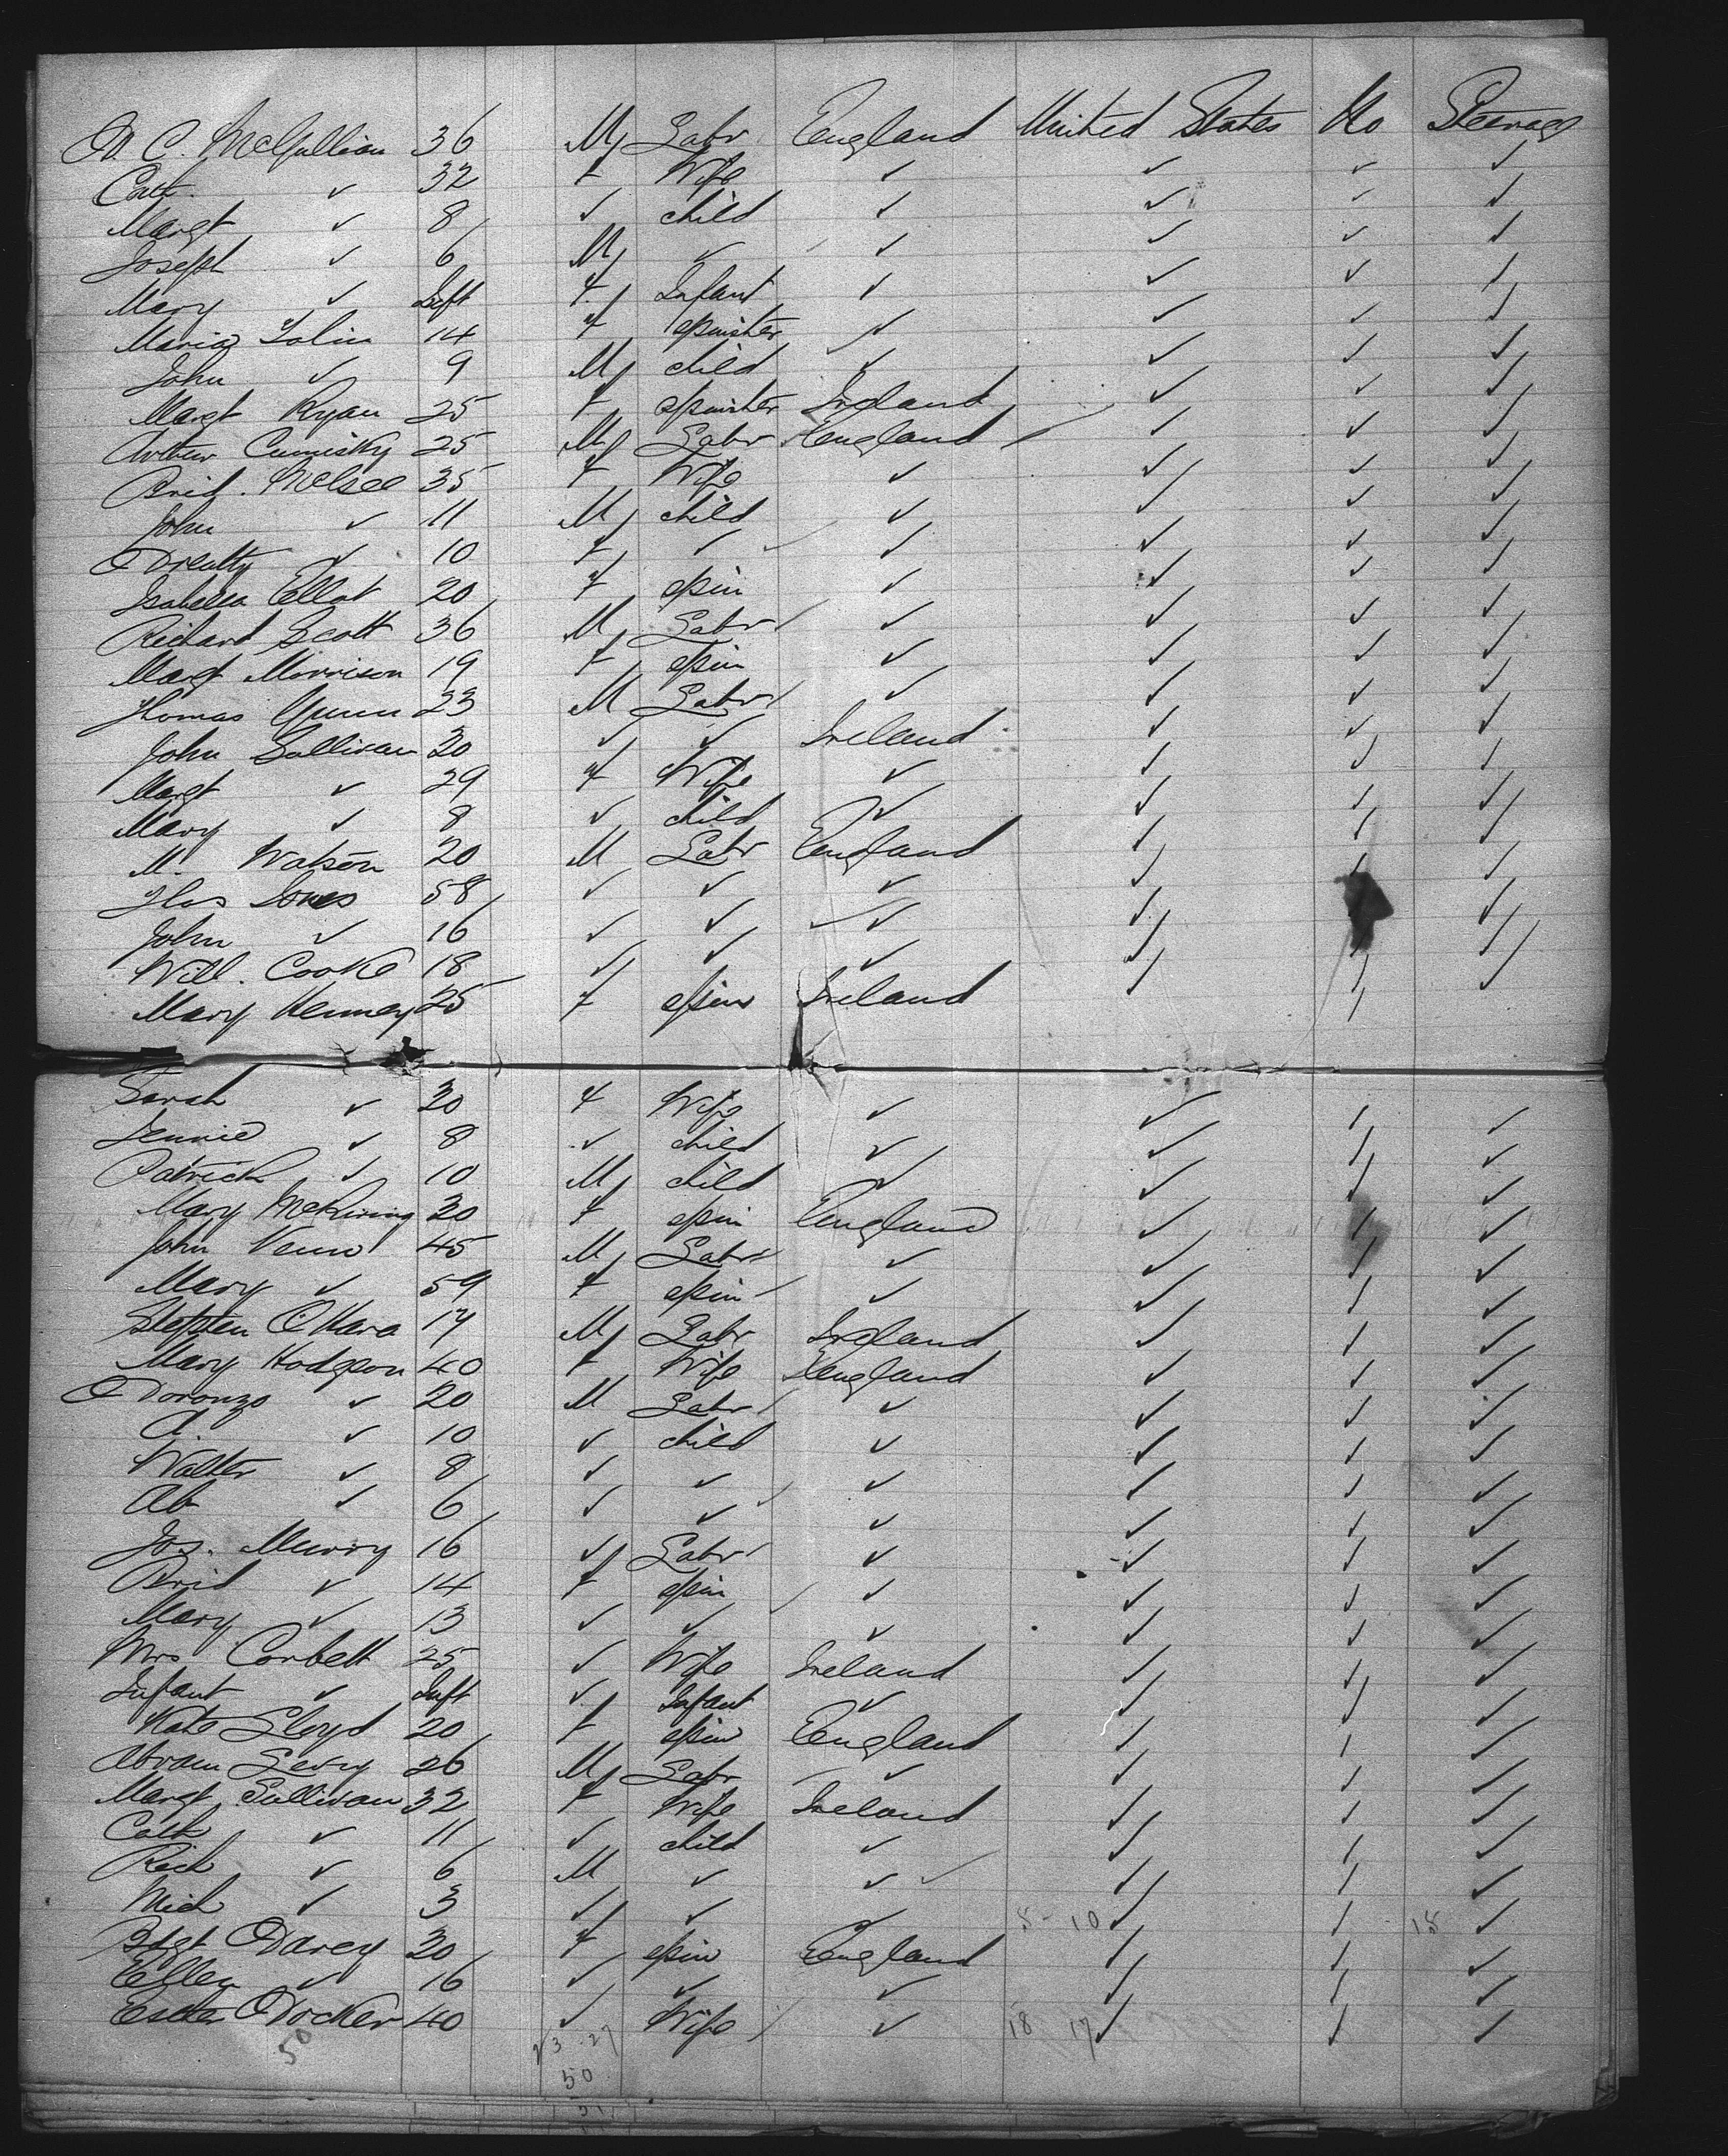 C. McGullian 36 M Labr England United States No Steerage
Cath. ✓ 32 f Wife ✓ ✓ ✓ ✓
Margt ✓ 8 ✓ child ✓ ✓ ✓ ✓
Joseph ✓ 6 M ✓ ✓ ✓ ✓ ✓
Mary ✓ Inft f Infant ✓ ✓ ✓ ✓
Maria Tolin 14 f spinster ✓ ✓ ✓ ✓
John ✓ 9 M child ✓ ✓ ✓ ✓
Margt Ryan 25 f spinster Ireland ✓ ✓ ✓
Arthur Cumisky 25 M Labr England ✓ ✓ ✓
Brid. 35 f Wife ✓ ✓ ✓ ✓
John ✓ 11 M child ✓ ✓ ✓ ✓
✓ 10 f ✓ ✓ ✓ ✓ ✓
Isabella Ellot 20 f spin ✓ ✓ ✓ ✓
Richard Scott 36 M Labr ✓ ✓ ✓ ✓
Margt Morrison 19 f spin ✓ ✓ ✓ ✓
Thomas Gunn 23 M Labr ✓ ✓ ✓ ✓
John Sullivan 30 ✓ ✓ Ireland ✓ ✓ ✓
Margt ✓ 29 f Wife ✓ ✓ ✓ ✓
Mary ✓ 8 ✓ child ✓ ✓ ✓ ✓
M. Watson 20 M Labr England ✓ ✓ ✓
Thos Jones 58 ✓ ✓ ✓ ✓ ✓ ✓
John ✓ 16 ✓ ✓ ✓ ✓ ✓
Will. Cooke 18 ✓ ✓ ✓ ✓ ✓ ✓
Mary Kenney 25 f spin Ireland ✓ ✓ ✓
Sarah ✓ 30 f Wife ✓ ✓ ✓ ✓
Jennie ✓ 8 ✓ child ✓ ✓ ✓ ✓
Patrick ✓ 10 M child ✓ ✓ ✓ ✓
Mary 20 f spin England ✓ ✓ ✓
John Venn 45 M Labr ✓ ✓ ✓ ✓
Mary ✓ 59 f spin ✓ ✓ ✓ ✓
Stephen O'Hara 17 M Labr Ireland ✓ ✓ ✓
Mary Hodgson 40 f Wife England ✓ ✓ ✓
✓ 20 M Labr ✓ ✓ ✓ ✓
A. ✓ 10 ✓ child ✓ ✓ ✓ ✓
Walter ✓ 8 ✓ ✓ ✓ ✓ ✓ ✓
Ab ✓ 6 ✓ ✓ ✓ ✓ ✓ ✓
Jos. Murry 16 ✓ Labr ✓ ✓ ✓ ✓
Brid ✓ 14 f spin ✓ ✓ ✓ ✓
Mary ✓ 13 ✓ ✓ ✓ ✓ ✓ ✓
Mrs Corbett 25 ✓ Wife Ireland ✓ ✓ ✓
Infant ✓ Inft ✓ Infant ✓ ✓ ✓ ✓
Kate Lloyd 20 f spin England ✓ ✓ ✓
Abram Levy 26 M Labr ✓ ✓ ✓ ✓
Margt Sullivan 32 f Wife Ireland ✓ ✓ ✓
Cath ✓ 11 ✓ child ✓ ✓ ✓ ✓
Rich ✓ 6 M ✓ ✓ ✓ ✓ ✓
Mich ✓ 3 ✓ ✓ ✓ 8-10 ✓ ✓ 18 ✓
Bdgt Darcy 30 f spin England ✓ ✓ ✓
Ellen ✓ 16 ✓ ✓ ✓ ✓ ✓ ✓
Esther Docker 40 ✓ Wife ✓ 18 17 ✓ ✓ ✓
50 23-27
50